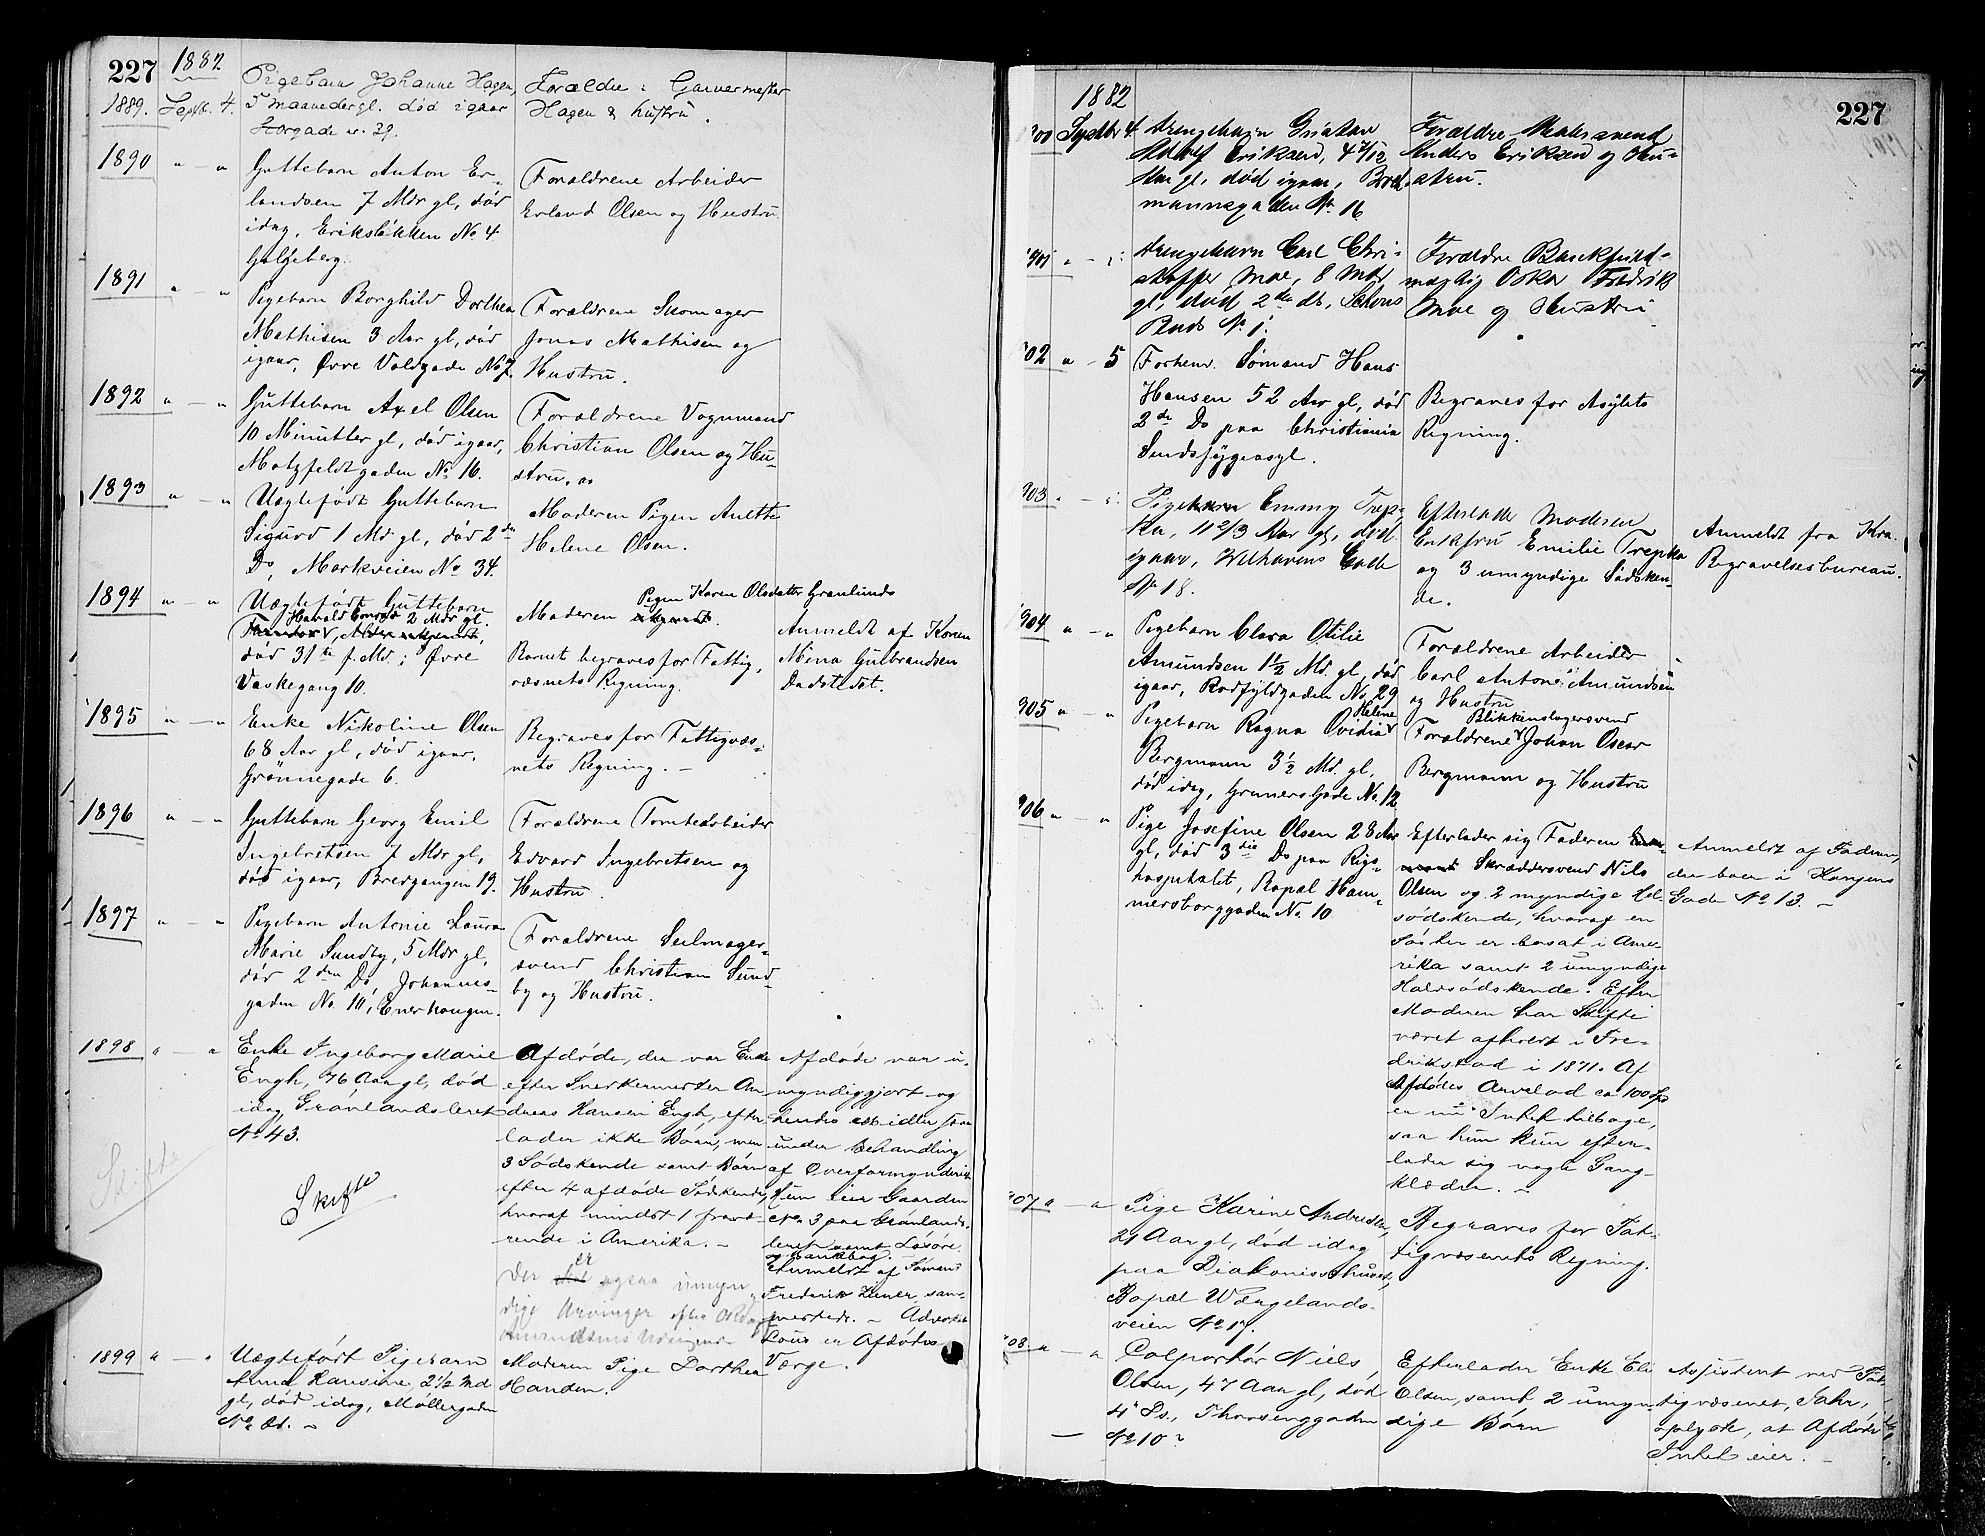 227
1882
1889. Septb. 4.
Pigebarn Johanne Hagen,
5 maaneder gl. død igaar
Storgade nr. 39.
Forældre: Garvermester
Hagen & hustru.
1890 " — "
Guttebarn Anton Er-
landsen 7 Mdr gl, død
idag, Eriksløkken No 4
Galgeberg.
Forældrene Arbeider
Erland Olsen og Hustru
1891 " — "
Pigebarn Borghild Dorthea
Mathisen 3 Aar gl, død
igaar, Øvre Voldgade No 7.
Forældrene Skomager
Jonas Mathisen og
Hustru.
1892 " — "
Guttebarn Axel Olsen
10 Minutter gl, død igaar,
Motzfeldtgaden No 16.
Forældrene Vognmand
Christian Olsen og Hu-
stru.
1893 " — "
Uægtefødt Guttebarn
Sigurd 1 Md gl, død 2de
Ds, Markveien No 34.
Moderen Pigen Anette
Helene Olsen.
1894 " — "
Uægtefødt Guttebarn
Harald 2 Mdr gl.
død 31te f. Md, i Øvre
Vaskegang 10.
Pigen Karen Olsdatter Grønlunds
Moderen ubekjendt.
Barnet begraves for Fattig-
væsnets Regning.
Anmeldt af Konen
Mina Gulbrandsen
Dadstedet.
1895 " — "
Enke Nikoline Olsen
68 Aar gl, død igaar,
Grønnegade 6.
Begraves for Fattigvæs-
nets Regning. —
1896 " — "
Guttebarn Georg Emil
Ingebretsen 7 Mdr gl,
død igaar, Bredgangen 19.
Forældrene Tomtearbeider
Edvard Ingebretsen og
Hustru.
1897 " — "
Pigebarn Antonie Laura
Marie Sundby, 5 Mdr gl,
død 2den Ds, Johannes-
gaden No 10, Enerhaugen.
Forældrene Seilmager-
svend Christian Sund-
by og Hustru.
1898 " — "
Enke Ingeborg Marie
Engh, 76 Aar gl, død
idag Grønlandsleret
No 43.
Skifte
Skifte
Afdøde, der var Enke
efter Snekkermester An-
dreas Hansen Engh, efter-
lader ikke Børn, men
3 Sødskende samt Børn
efter 4 afdøde Sødskende,
hvoraf mindst 1 fravæ-
rende i Amerika. —
Der er ogsaa umyn-
dige Arvinger efter
Afdøde var u-
myndiggjort og
hendes midler staar
under Behandling
af Overformynderiet
Hun eier Gaarden
No 3 paa Grønlands-
leret samt Løsøre
og Bankbog.
Anmeldt af Sømand
Frederik sam-
mesteds. — Advokat
er Afdødes
Værge.
1899 " — "
Uægtefødt Pigebarn
Anna Hansine, 2½ Md
gl, død idag, Møllergaden
No
Moderen Pige Dorthea
Hansen.
227
1882
900 Septbr 4.
Drengebarn Gustav
Adolf Eriksen, 4 7/12
Aar gl, død igaar, Bred-
mannsgaden No 16
Forældre Malersvend
Anders Eriksen og Hu-
stru.
901 " — "
Drengebarn Carl Chri-
stoffer Moe, 8 Mdr
gl, død 2den ds, Schous
Plads No 1.
Forældre
mægtig Oskar Fredrik
Moe og Hustru
902 " — 5
Forhenv. Sømand Hans
Hansen 52 Aar gl, død
2de Ds paa Christiania
Sindssygeasyl.
Begraves for Asylets
Regning.
903 " — "
Pigebarn Emmy Trep-
ka, 11 2/3 Aar gl, død
igaar, Welhavens Gade
No 18.
Efterlader Moderen
Enkefru Emilie Trepka
og 3 umyndige Sødsken-
de.
Anmeldt fra Kra.
Begravelsesbureau.
904 " — "
Pigebarn Clara Otilie
Amundsen 1½ Md. gl, død
igaar, Rodfyldgaden No 29
Forældrene Arbeider
Carl Anton Amundsen
og Hustru
905 " — "
Helene
Pigebarn Ragna Ovidia
Bergmann 3½ Md. gl,
død idag, Grunersgade No 12
Blikkenslagersvend
Forældrene Johan Oscar
Bergmann og Hustru
906 " — "
Pige Josefine Olsen 28 Aar
gl, død 3die Ds paa Rigs-
hospitalet, Bopæl Ham-
mersborggaden No 10
Efterlader sig Faderen
Skræddersvend Nils
Olsen og 2 myndige Hel-
sødskende, hvoraf en
Søster er bosat i Ame-
rika samt 2 umyndige
Halvsødskende. Efter
Moderen har Skifte
været afholdt i Fre-
drikstad i 1871. Af
Afdødes Arvelod ca 100 Sp
er nu Intet tilbage,
saa hun kun efter-
lader sig nogle Gang-
klæder. —
Anmeldt af Faderen,
der boer i Kongens
Gade No 13. —
907 " — "
Pige Karine Andresen,
21 Aar gl, død idag
paa Diakonissehuset,
Bopæl Wergelands-
veien No 17.
Begraves for Fat-
tigvæsenets Regning.
908 " — "
Colportør Niels
Olsen, 47 Aar gl, død
4' Ds., Thorsenggaden
No 10.
Efterlader Enke Eli
Olsen, samt 2 umyn-
dige Børn
Assistent ved Fat-
tigvæsenet, Fahr,
oplyste, at Afdøde
Intet eier. —